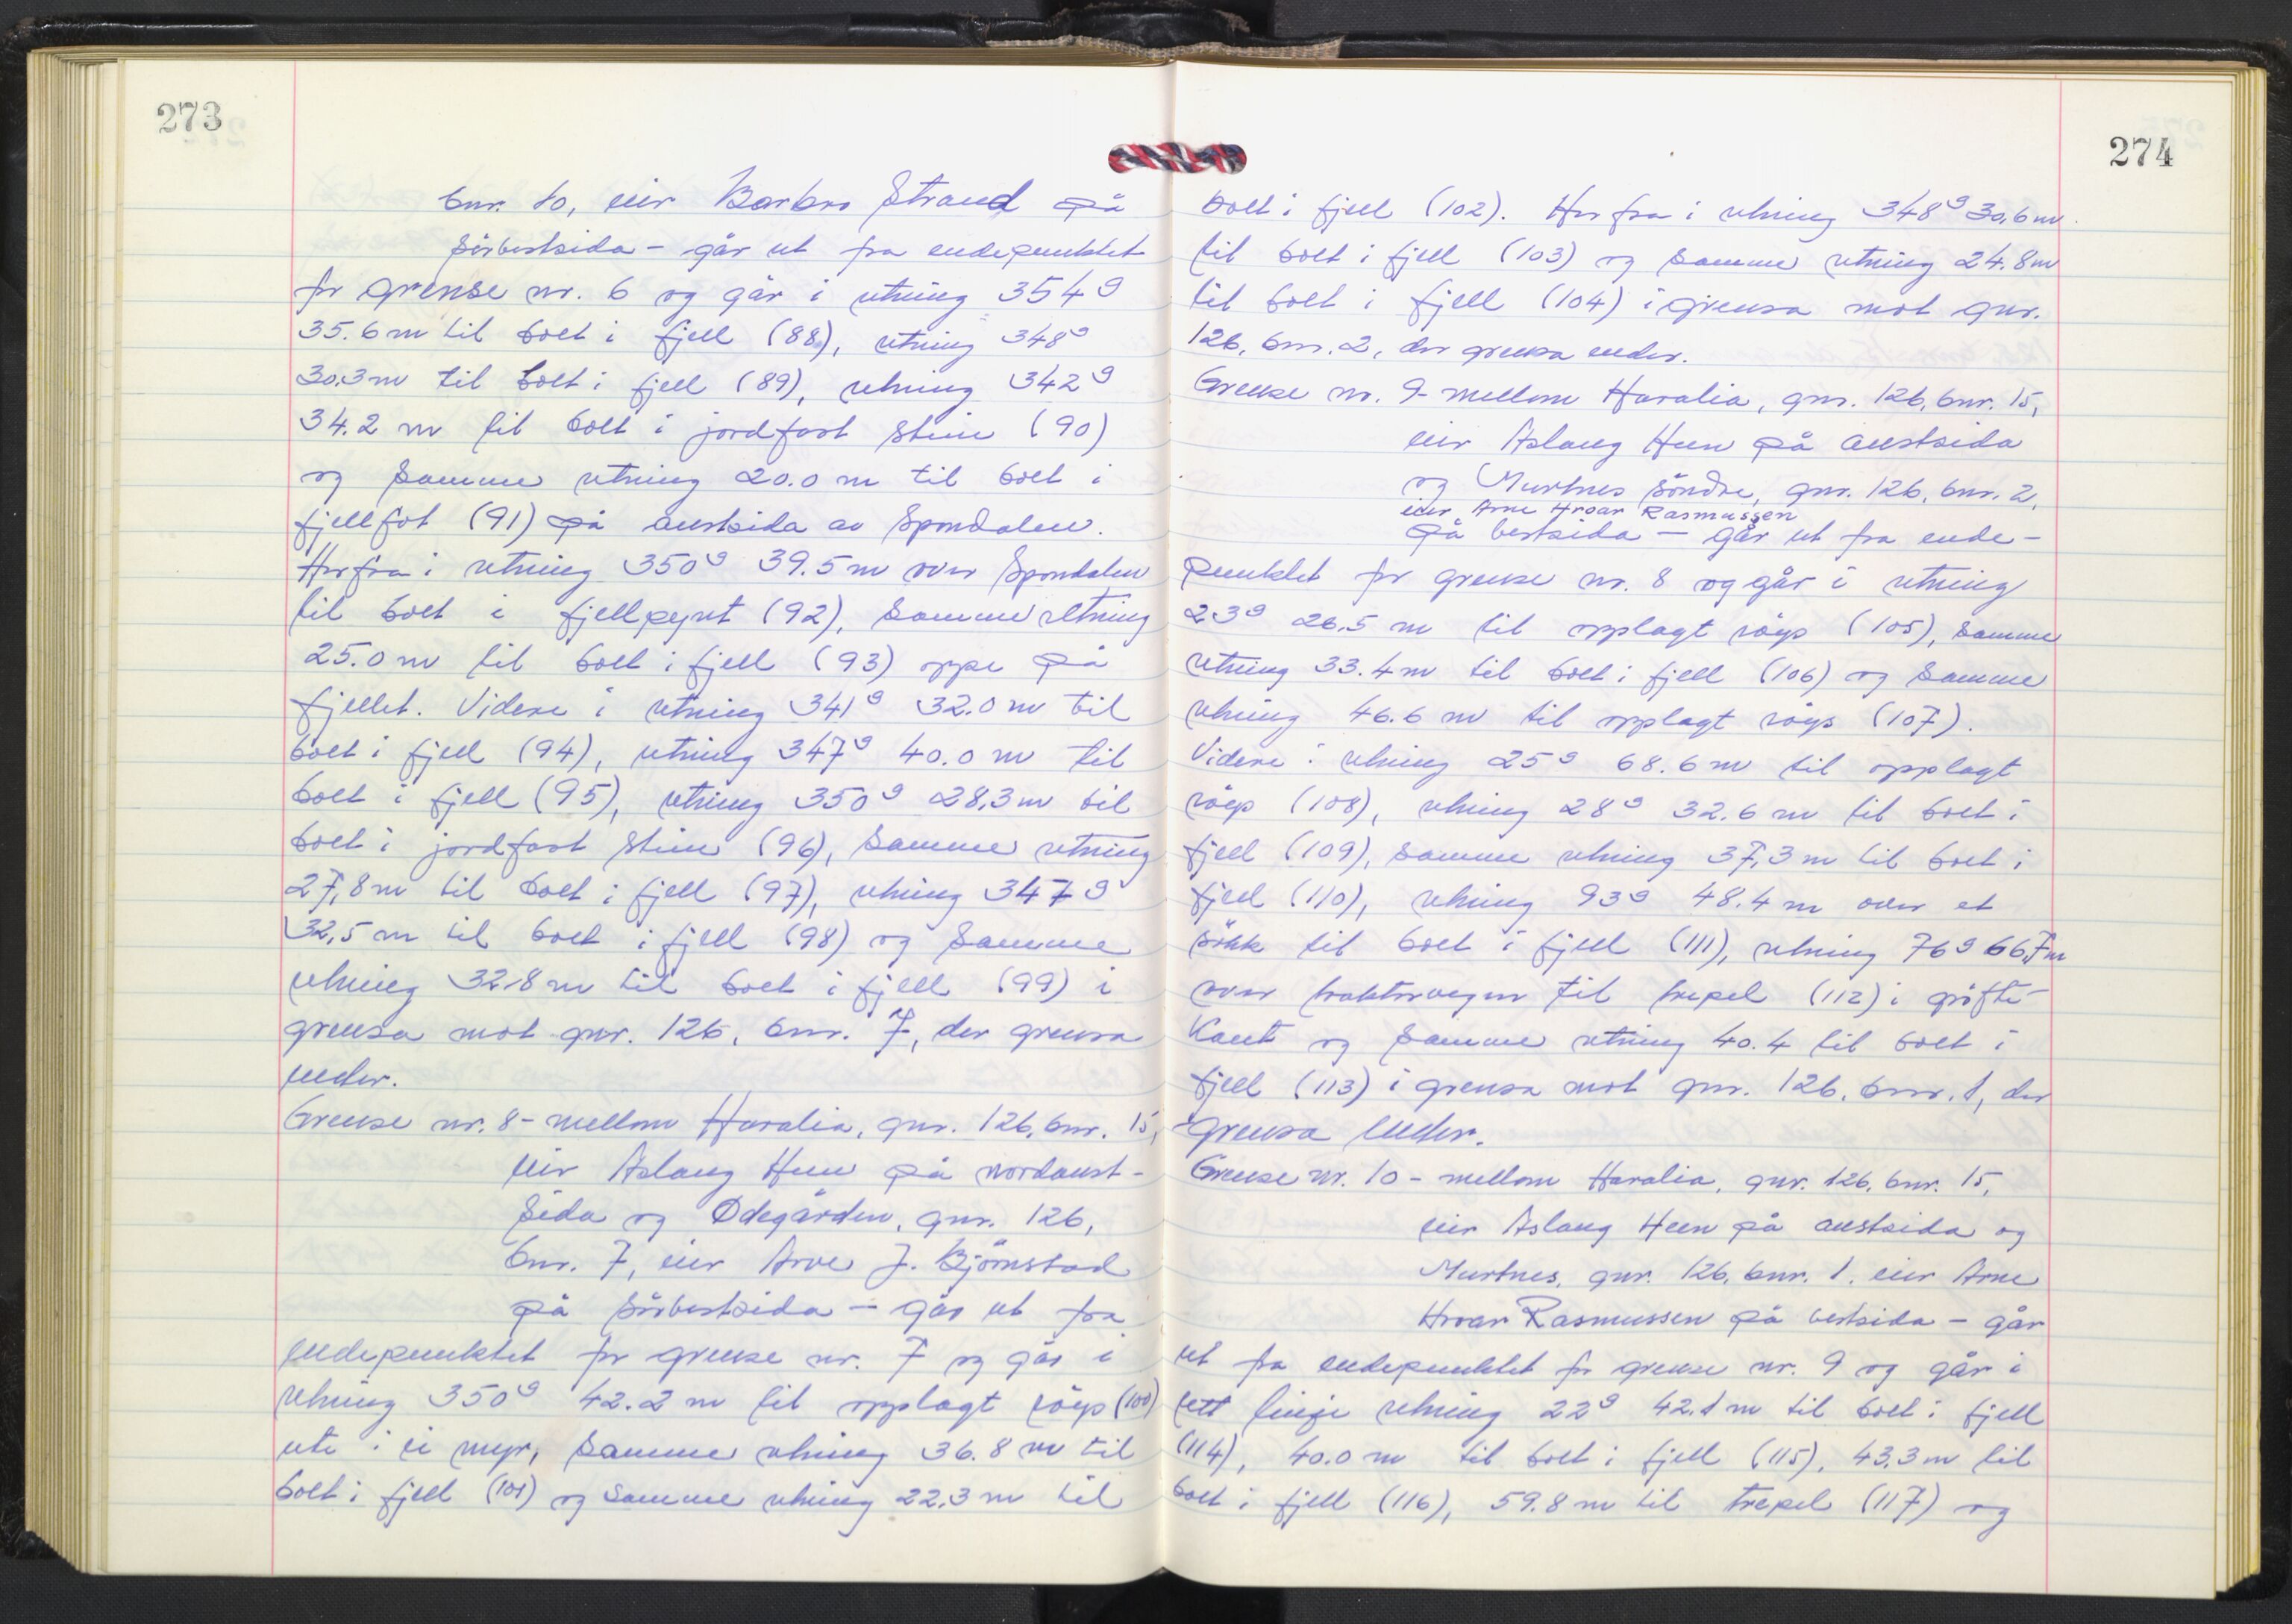 273
bnr. 10, eier Barbro Strand på
sörvestsida - går ut fra endepunktet
for grense nr. 6 og går i retning 354g
35.6 m til bolt i fjell (88), retning 348g
30.3 m til bolt i fjell (89), retning 342g
34.2 m til bolt i jordfast stein (90)
og samme retning 20.0 m til bolt i
fjellfot (91) på austsida av Spondalen.
Herfra i retning 350g 39.5 m over Spondalen
til bolt i fjellpynt (92), samme retning
25.0 m til bolt i fjell (93) oppe på
fjellet. Videre i retning 341g 32.0 m til
bolt i fjell (94), retning 347g 40.0 m til
bolt i fjell (95), retning 350g 28,3 m til
bolt i jordfast stein (96), samme retning
27,8 m til bolt i fjell (97), retning 347g
32,5 m til bolt i fjell (98) og samme
retning 32,8 m til bolt i fjell (99) i
grensa mot gnr. 126, bnr. 7, der grensa
ender.
Grense nr. 8 - mellom Haralia, gnr. 126, bnr. 15,
eier Aslaug Heen på nordaust-
sida og Ødegården, gnr. 126,
bnr. 7, eier Arve J. Björnstad
på sörvestsida - går ut fra
endepunktet for grense nr. 7 og går i
retning 350g 42.2 m til opplagt röys (100)
ute i ei myr, samme retning 36.8 m til
bolt i fjell (101) og samme retning 22,3 m til
274
bolt i fjell (102). Herfra i retning 348g 30,6 m
til bolt i fjell (103) og samme retning 24.8 m
til bolt i fjell (104) i grensa mot gnr.
126, bnr. 2, der grensa ender.
Grense nr. 9 - mellom Haralia, gnr. 126, bnr. 15,
eier Aslaug Heen på austsida
og Murtnes söndre, gnr. 126, bnr. 2,
eier Arne Hroar Rasmussen
på vestsida - går ut fra ende-
punktet for grense nr. 8 og går i retning
23g 26.5 m til opplagt röys (105), samme
retning 33.4 m til bolt i fjell (106) og samme
retning 46.6 m til opplagt röys (107).
Videre i retning 25g 68.6 m til opplagt
röys (108), retning 28g 32.6 m til bolt i
fjell (109), samme retning 37,3 m til bolt i
fjell (110), retning 93g 48.4 m over et
sökk til bolt i fjell (111), retning 76g 66,7 m
over traktorvegen til trepel (112) i gröfte-
kant og samme retning 40.4 til bolt i
fjell (113) i grensa mot gnr. 126, bnr. 1, der
grensa ender.
Grense nr. 10 - mellom Haralia, gnr. 126, bnr. 15,
eier Aslaug Heen på austsida og
Murtnes, gnr. 126, bnr. 1, eier Arne
Hroar Rasmussen på vestsida - går
ut fra endepunktet for grense nr. 9 og går i
rett linje retning 22g 42.1 m til bolt i fjell
(114), 40.0 m til bolt i fjell (115), 43,3 m til
bolt i fjell (116), 59.8 m til trepel (117) og